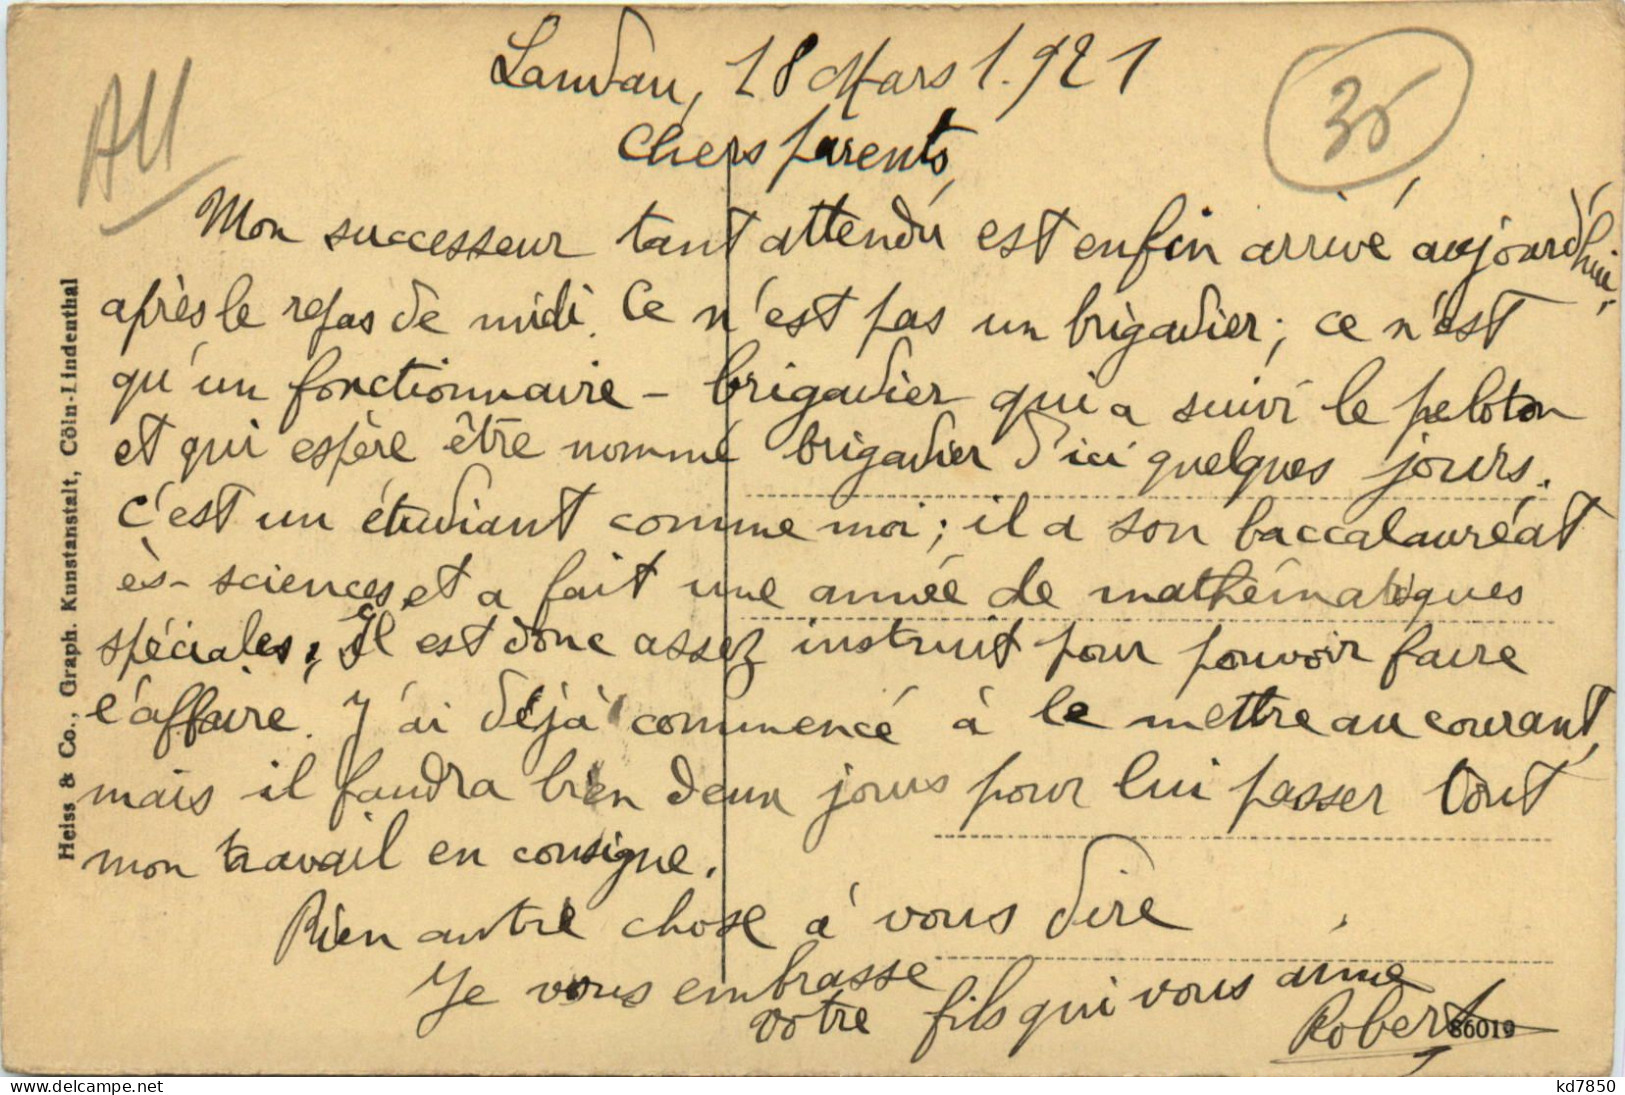 Landau, 28 Mars 1.921
Chers parents,
Mon successeur tant attendu est enfin arrivé aujourd'hui,
après le repas de midi. Ce n'est pas un brigadier; ce n'est
qu'un fonctionnaire - brigadier qui a suivi le peloton
et qui espère être nommé brigadier d'ici quelques jours.
C'est un étudiant comme moi; il a son baccalauréat
ès-sciences et a fait une année de mathématiques
spéciales; Il est donc assez instruit pour pouvoir faire
l'affaire. J'ai déjà commencé à le mettre au courant,
mais il faudra bien deux jours pour lui passer tout
mon travail en consigne.
Rien autre chose à vous dire
Je vous embrasse
votre fils qui vous aime
Robert
All
35
Heiss & Co., Graph. Kunstanstalt, Cöln-Lindenthal
86019
www.delcampe.net
kd7850